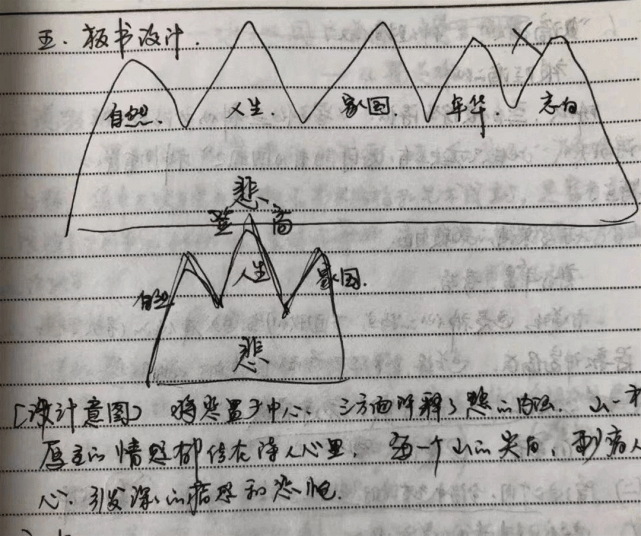 五. 板书设计.
自然. 人生. 家国. 年华. 志向
悲
登高
自然 人生 家国.
悲
[设计意图] 将悲置于中心. 三方面解释了悲的内涵. 山一
厚重的情愁都压在诗人心里. 每一个山的尖角, 刺痛人
心. 引发深的愁和悲